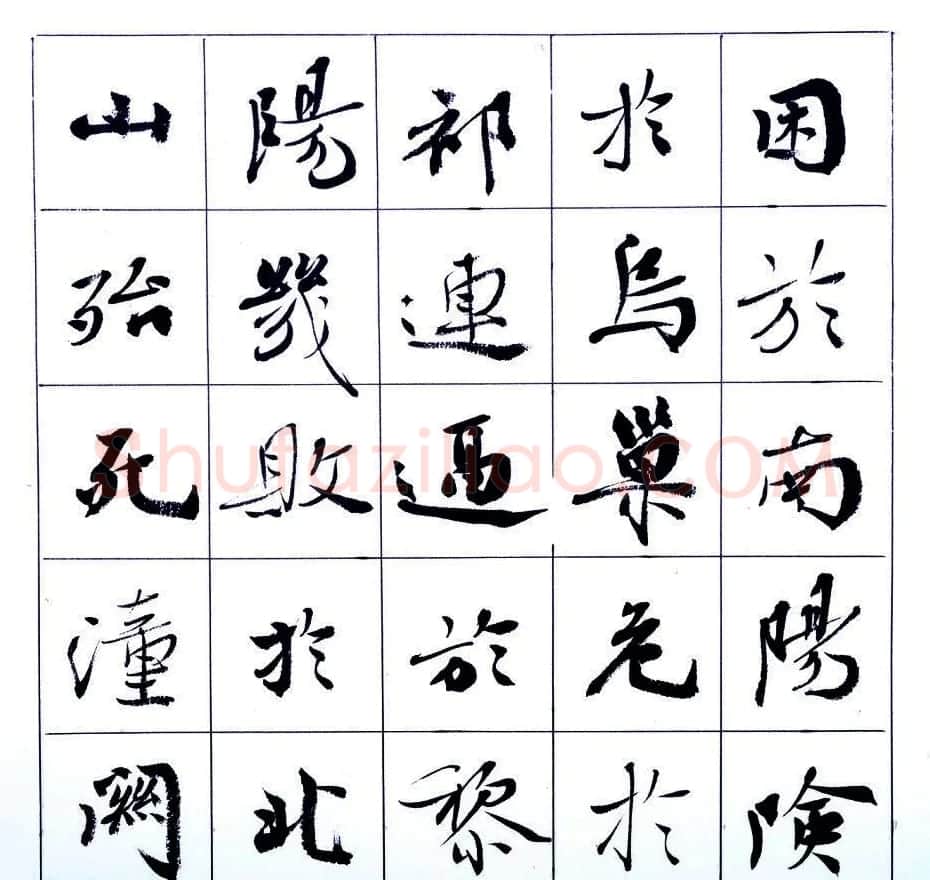 困於南陽險
於烏巢危於
祁連逼於黎
陽幾敗於北
山殆死潼關
Shufaziliao.COM